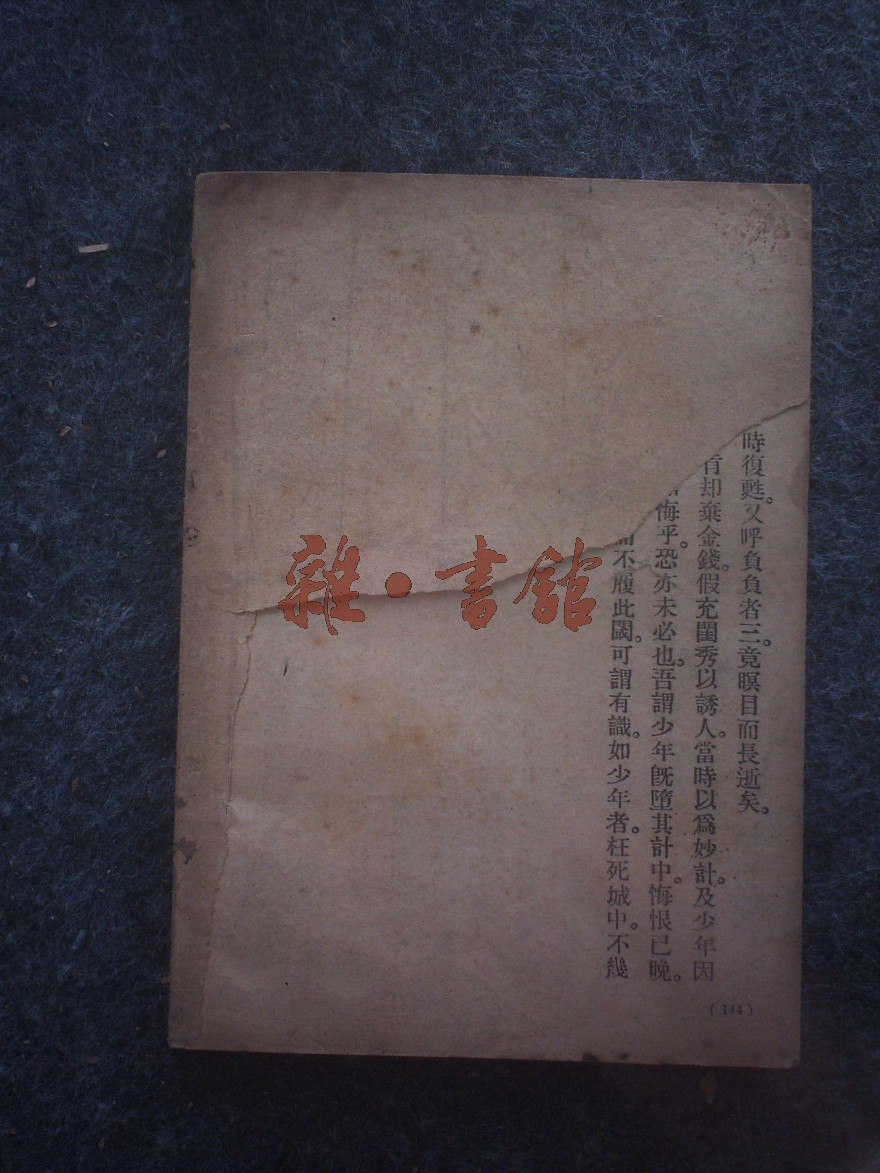 時復甦。又呼負負者三。竟瞑目而長逝矣。
肯却棄金錢。假充閨秀以誘人。當時以爲妙計。及少年因
悔乎。恐亦未必也。吾謂少年旣墮其計中。悔恨已晚。
不履此閾。可謂有識。如少年者。枉死城中。不幾
(144)
雜·書館